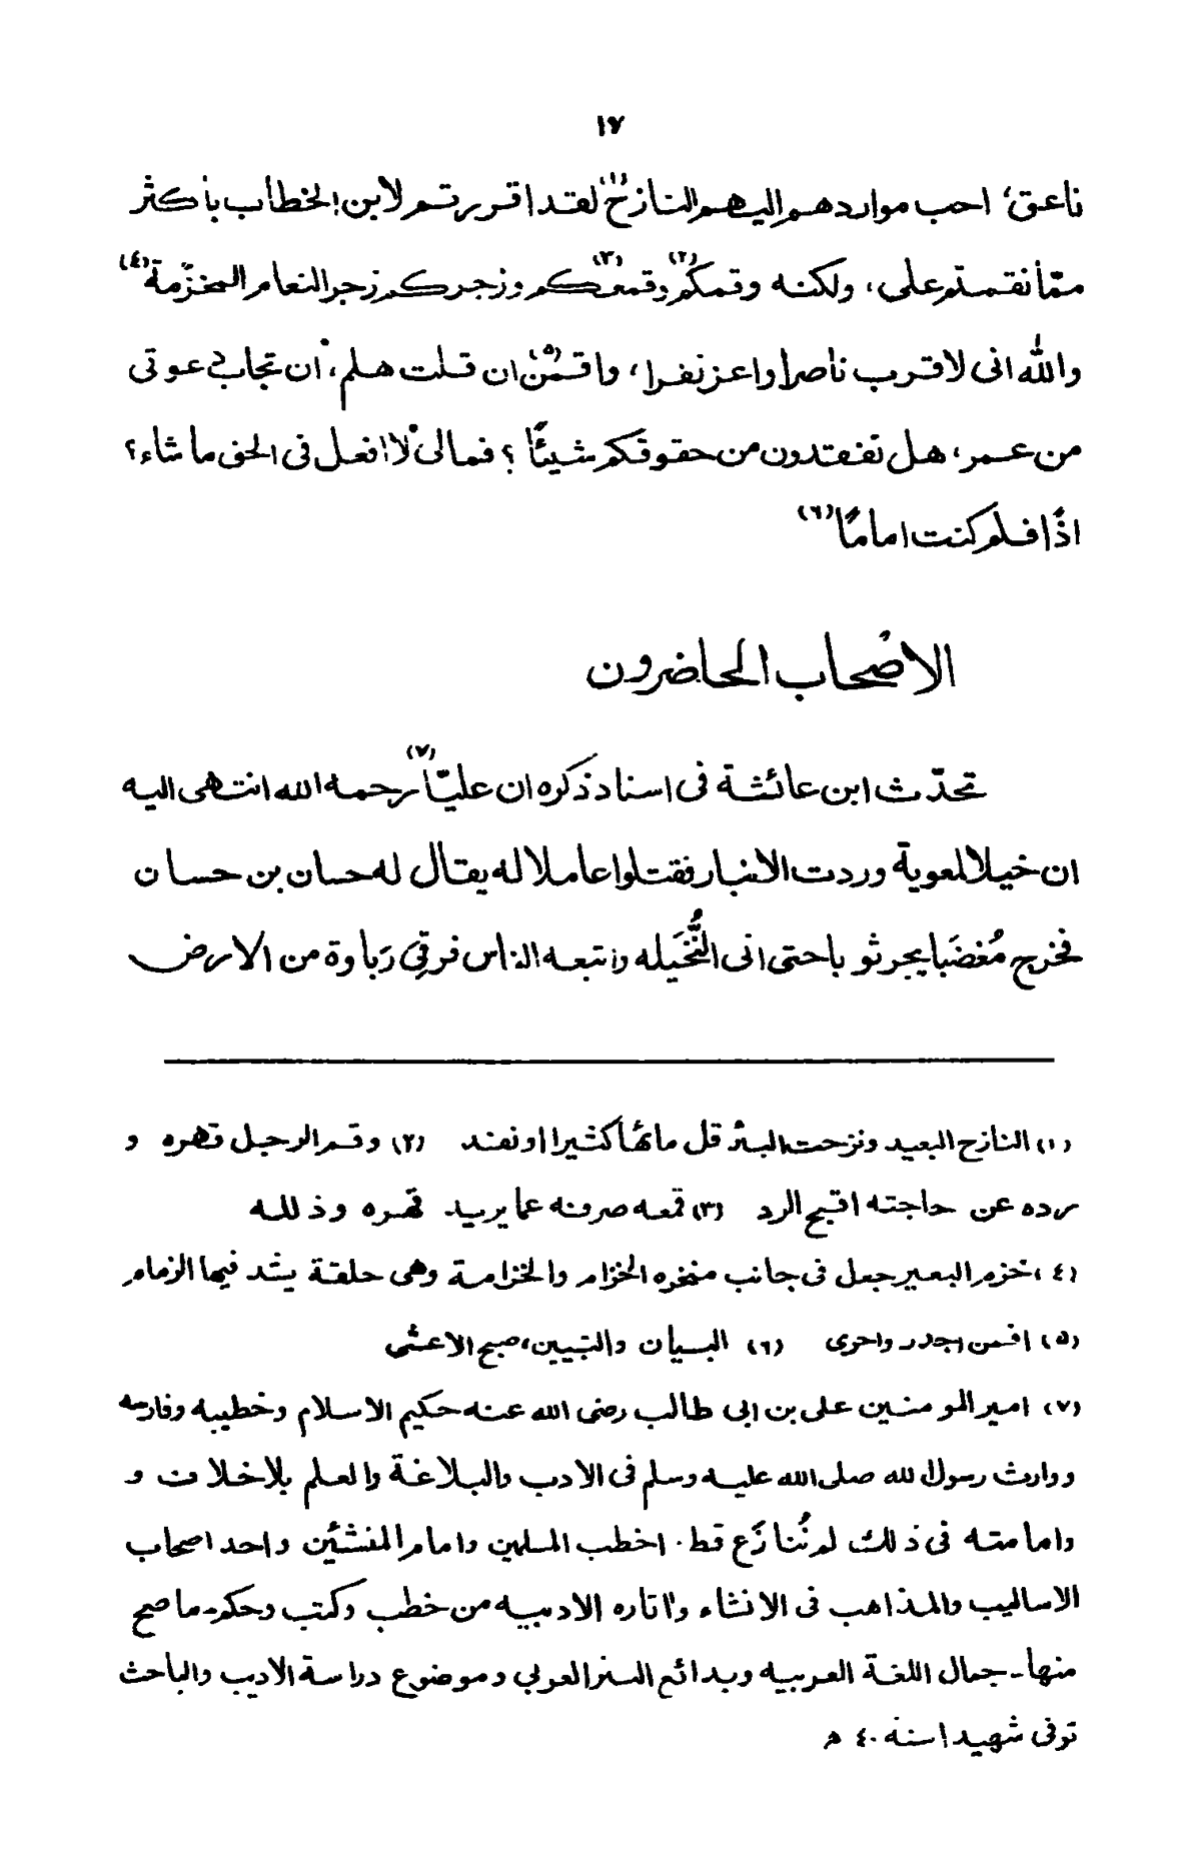 ١٧
ناعق، احب مواردهم اليهم النازح(١) لقد اقررتم لابن الخطاب بأكثر
ممّا نقمتم على، ولكنه وقمكم(٢) وقمعكم(٣) وزجركم زجر النعام المخزّمة(٤)
والله انى لاقرب ناصرا واعز نفرا، واقمن(٥) ان قلت هلم، ان تجاب دعوتى
من عمر، هل تفقدون من حقوقكم شيئًا؟ فمالى لا افعل فى الحق ما شاء؟
اذًا فلم كنت امامًا(٦)
الاصحاب الحاضرون
تحدّث ابن عائشة فى اسناد ذكره ان عليّا(٧) رحمه الله انتهى اليه
ان خيلا لمعوية وردت الانبار فقتلوا عاملا له يقال له حسان بن حسان
فخرج مُغضَبا يجر ثوبا حتى اتى النُّخَيله واتبعه الناس فرقِىَ رَباوة من الارض
(١) النازح البعيد ونزحت البئر قل مائها كثيرا او نفند (٢) وقم الرجل قهره و
رده عن حاجته اقبح الرد (٣) قمعه صرفه عما يريد قهره وذلله
(٤) خزم البعير جعل فى جانب منخره الخزام والخزامة وهى حلقة يشد فيها الزمام
(٥) اقمن اجدر واحرى (٦) البيان والتبيين، صبح الاعشى
(٧) امير المومنين على بن ابى طالب رضى الله عنه حكيم الاسلام وخطيبه وفارسه
ووارث رسول الله صلى الله عليه وسلم فى الادب والبلاغة والعلم بلا خلاف و
وامامته فى ذلك لم تُنازَع قط. اخطب المسلمين وامام المنشئين واحد اصحاب
الاساليب والمذاهب فى الانشاء واثاره الادبيه من خطب وكتب وحكم ـ ما صح
منها ـ جمال اللغة العربيه وبدائع النثر العربى وموضوع دراسة الاديب والباحث
توفى شهيدا سنه ٤٠ ه